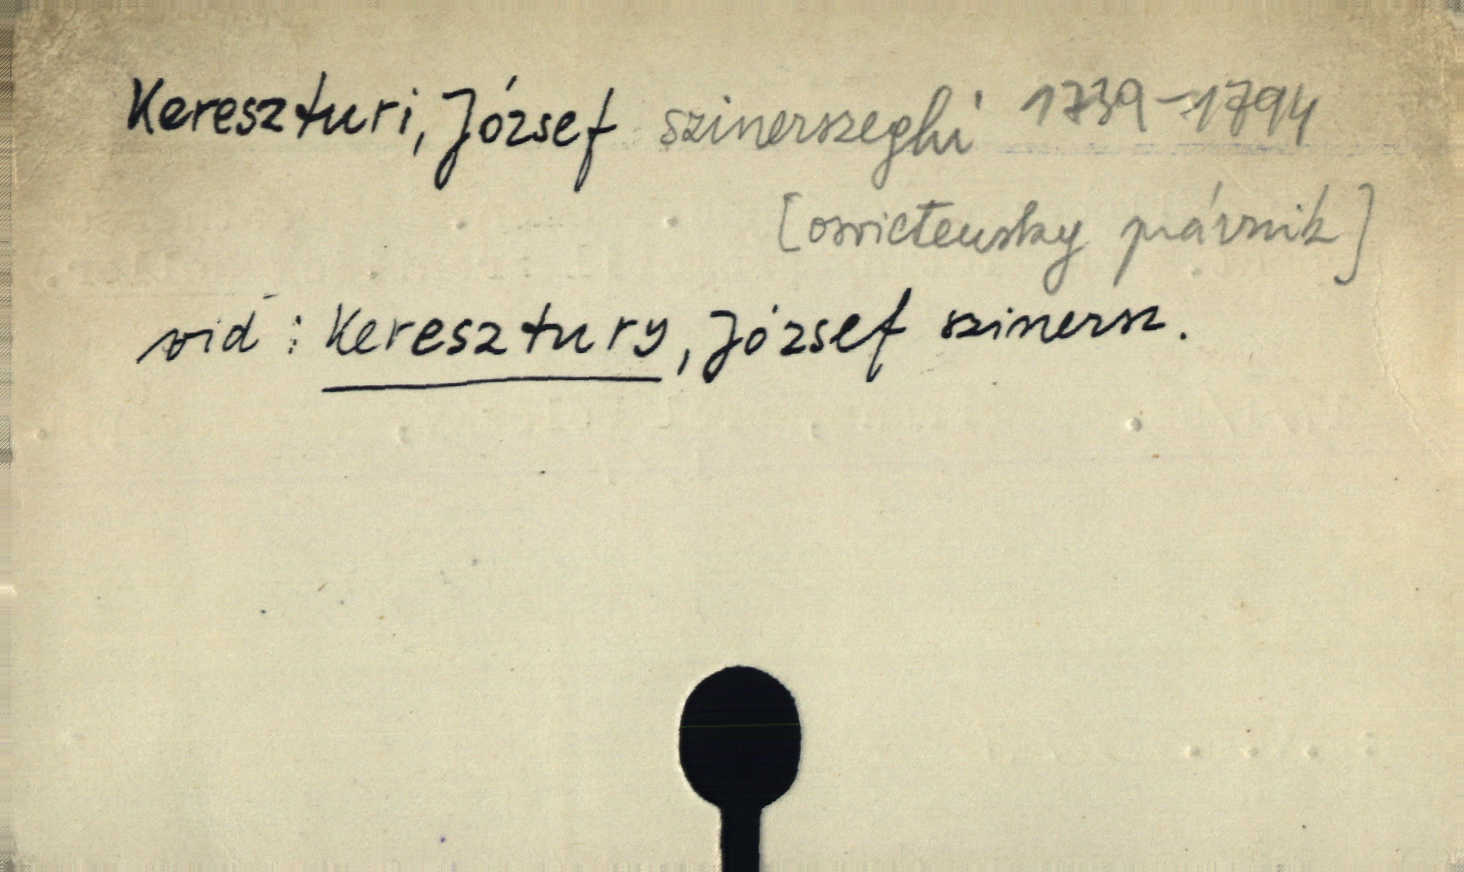 Kereszturi, József szinerszeghi 1739-1794
[osvietensky piárnik]
vid: Keresztury, József szinersz.